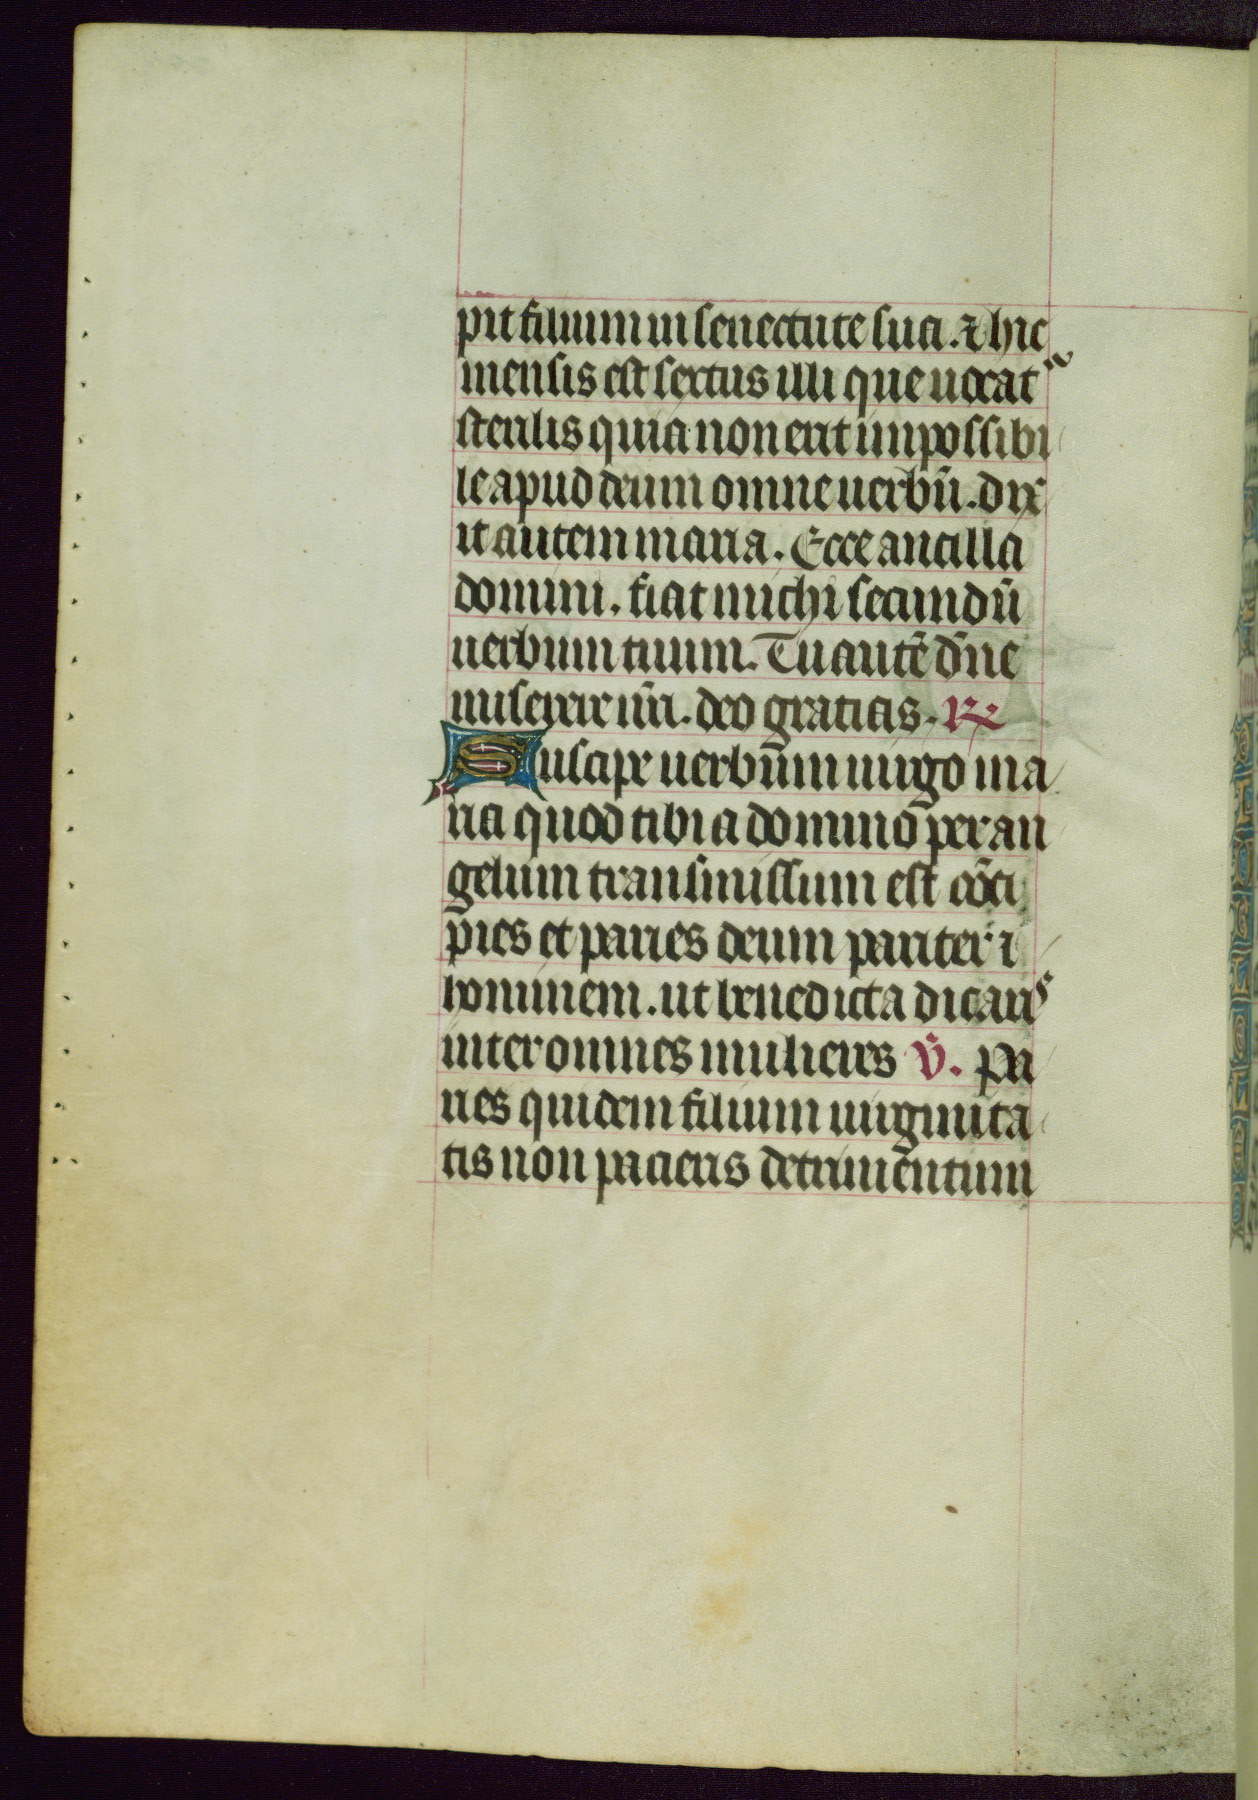 pit filium in senectute sua. ⁊ hic
mensis est sextus illi que uocat᷑
sterilis quia non erit impossibi
le apud deum omne uerbū. dix
it autem maria. Ecce ancilla
domini. fiat michi secundū
uerbum tuum. Tu autē dn̄e
miserere nr̄i. deo gratias. ℟
Suscipe uerbum uirgo ma
ria quod tibi a domino per an
gelum transmissum est cōci
pies et paries deum pariter ⁊
hominem. ut benedicta dicaris
inter omnes mulieres ℣. Pa
ries quidem filium uirginita
tis non pacieris detrimentum